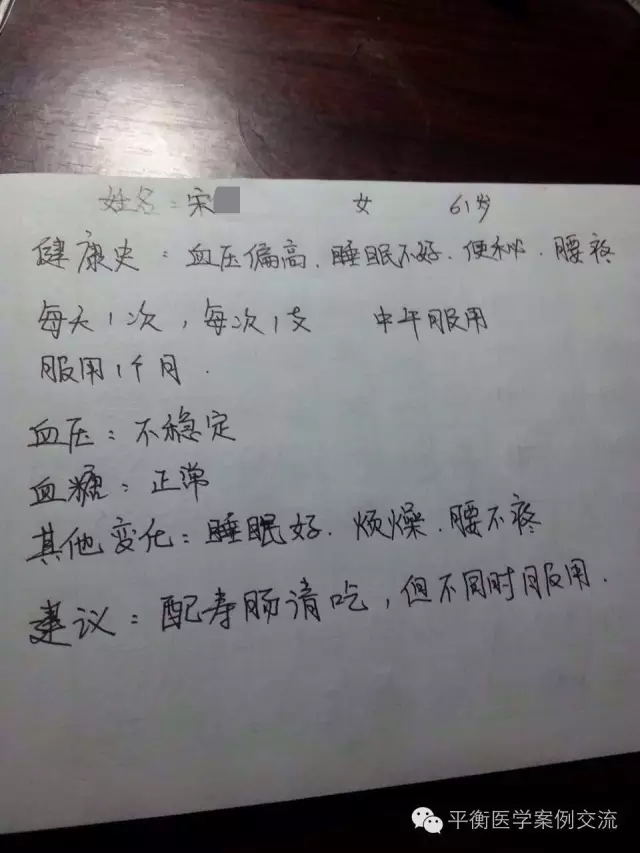 姓名：宋 女 61岁
健康史：血压偏高、睡眠不好、便秘、腰疼
每天1次，每次1支 中午服用
服用1个月.
血压：不稳定
血糖：正常
其他变化：睡眠好、烦燥、腰不疼
建议：配寿肠清吃，但不同时服用.
平衡医学案例交流